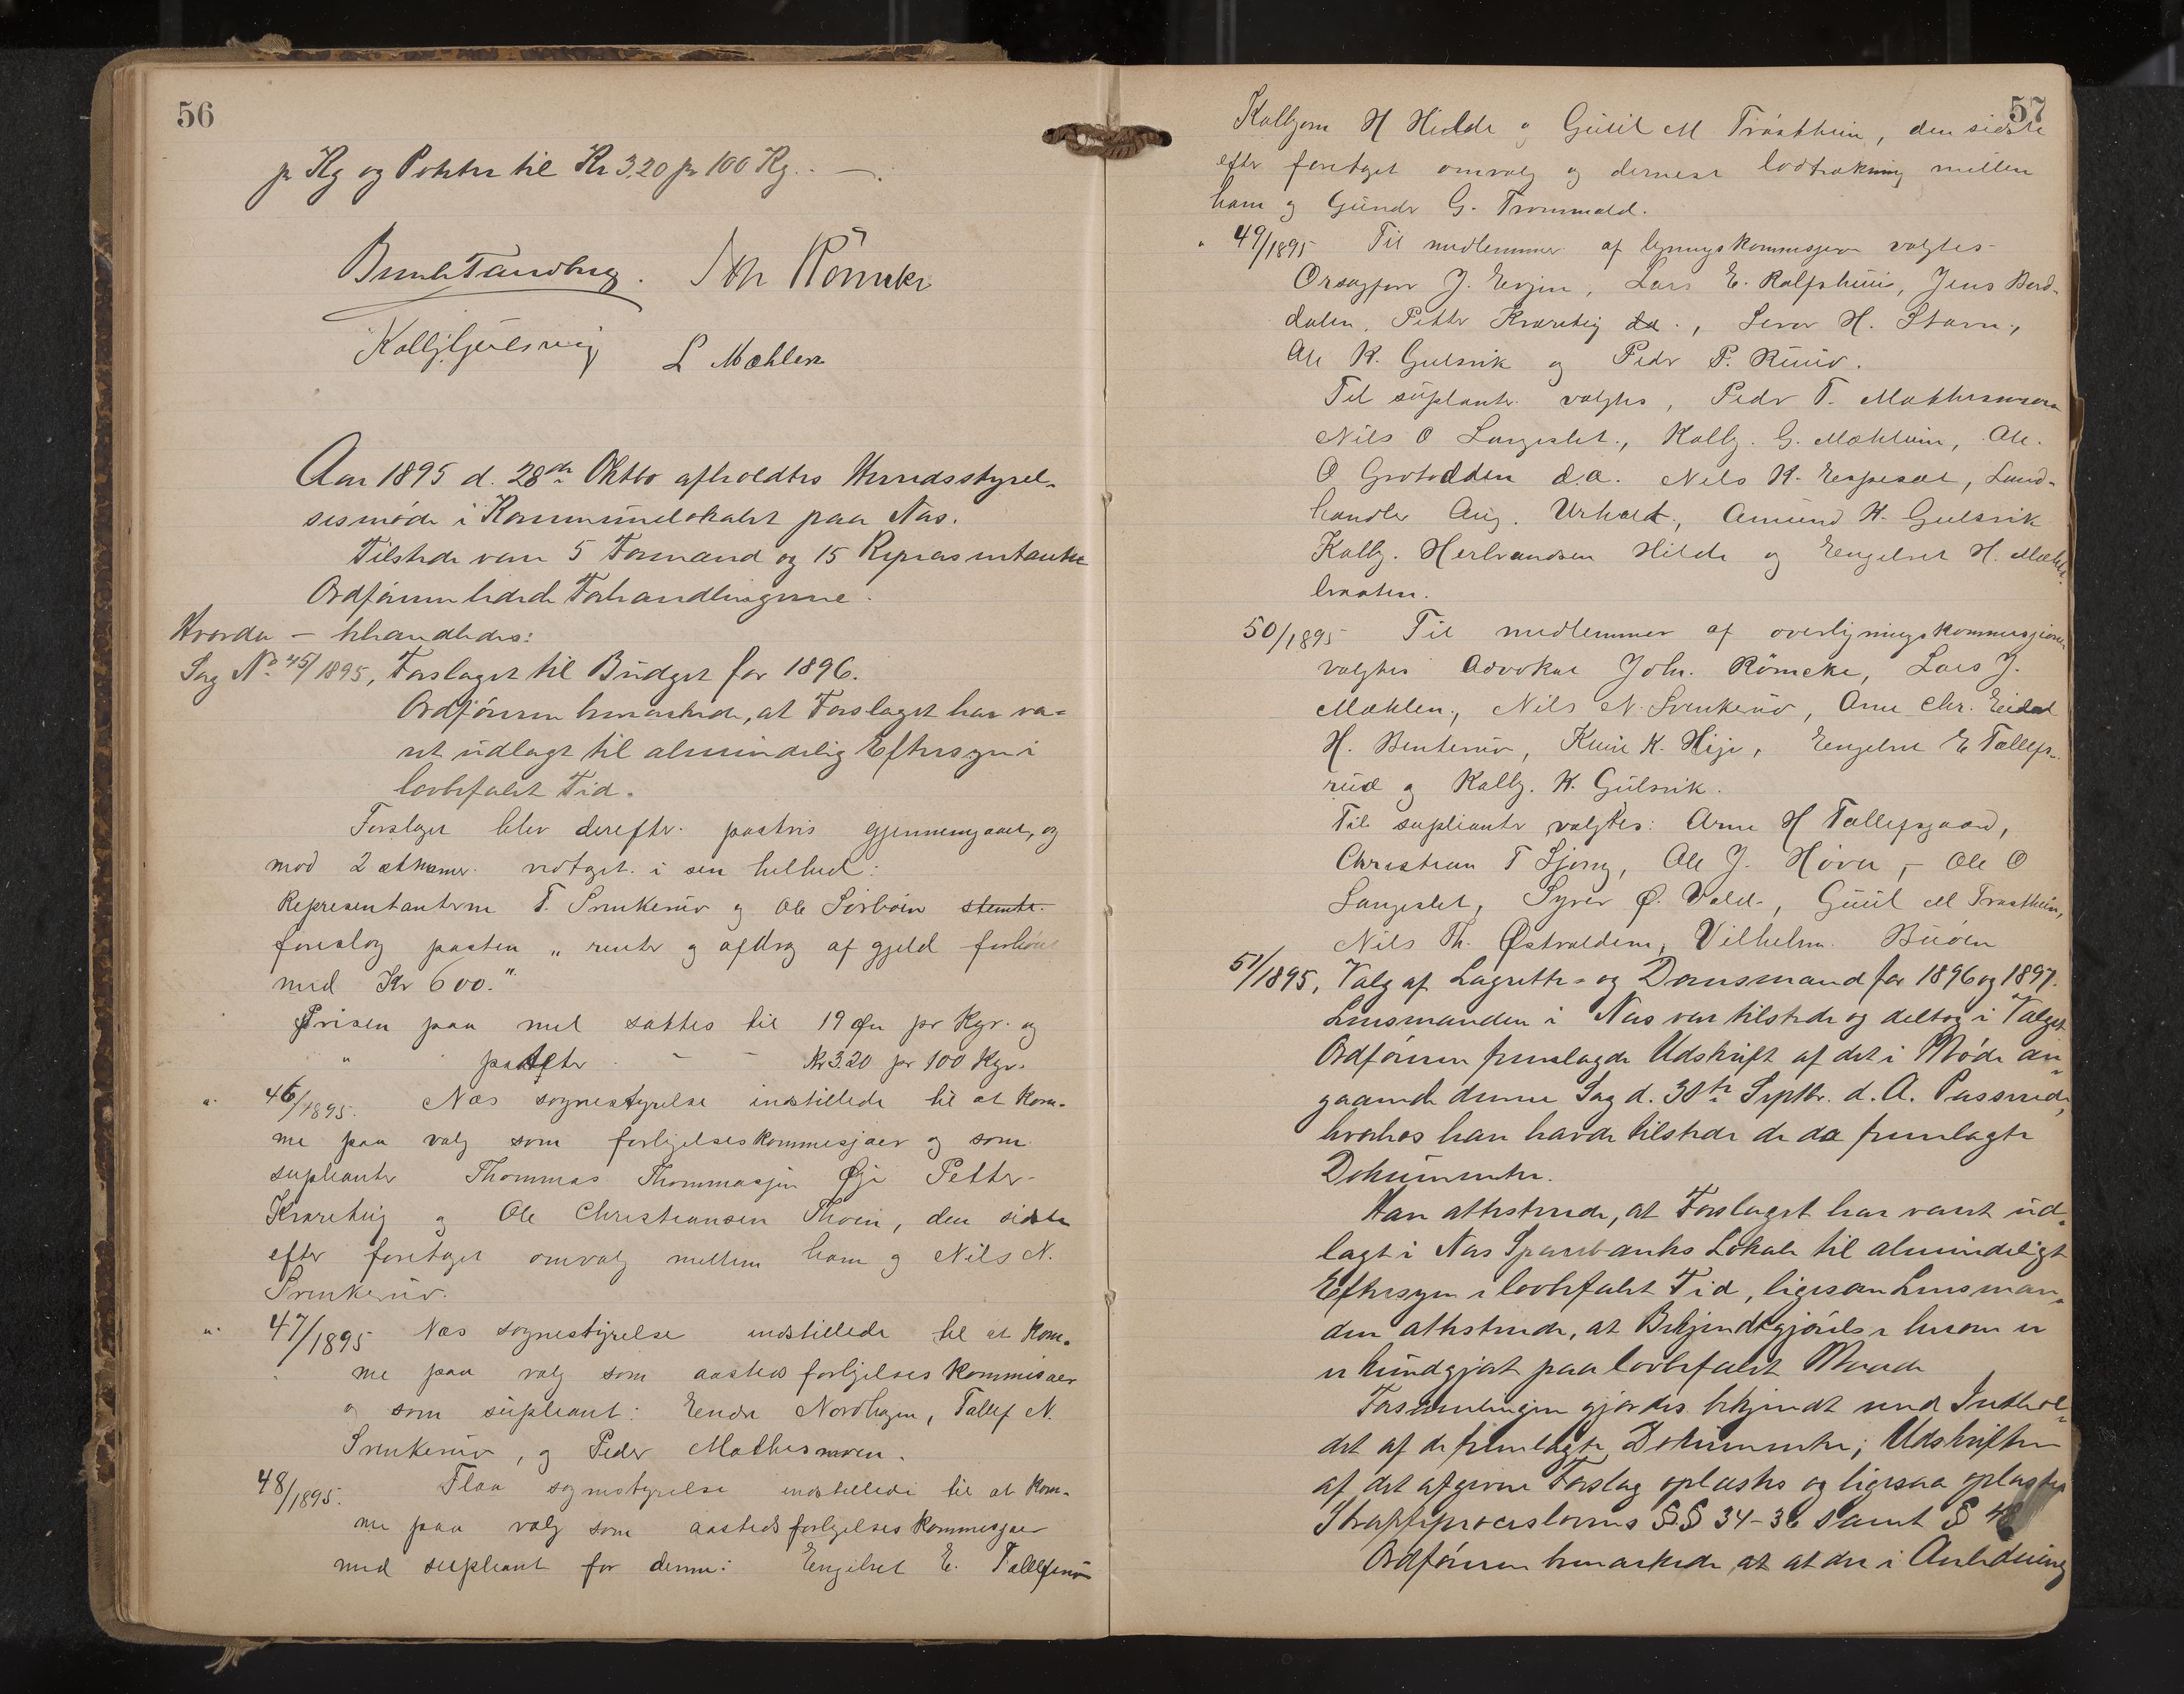 56
pr Kg og Poteter til Kr 3.20 pr 100 Kg. . —.
Kolbj Gulsvig
L Mæhlen
Aar 1895 d. 28de Oktbr afholdtes Herredsstyrel-
sesmøde i Kommunelokalet paa Næs.
Tilstede vare 5 Formænd og 15 Repræsentanter
Ordføreren ledede Forhandlingerne.
Hvorda – behandledes:
Sag No 45/1895, Forslaget til Budget for 1896.
Ordføreren bemærkede, at Forslaget har væ=
ret udlagt til almindelig Eftersyn i
lovbefalet Tid.
Forslaget blev derefter postvis gjennemgaaet, og
mod 2 stemmer vedtaget i sin helhed:
Representanterne T. Svenkerud og Ole Sørbøen stemte.
foreslog posten „renter og afdrag af gjeld forhøiet
med Kr 600."
Prisen paa mel sattes til 19 Øre pr Kgr. og
" poteter - - Kr 3.20 pr 100 Kgr.
" 46/1895. Næs sognestyrelse indstillede til at kom-
me paa valg som forligelseskommesjaer og som
supleanter Thommas Thommasjen Øje Petter
Kvaretuig og Ole Christiansen Thoen, den sidste
efter foretaget omvalg mellem ham og Nils N.
Svenkerud.
" 47/1895 Næs sognestyrelse indstillede til at kom-
me paa valg som aasteds forligelses kommisaer
og som supleant: Endre Nordhagen, Tollef N.
Svenkerud, og Peder Mathesmoen.
48/1895. Flaa sognestyrelse indstillede til at kom-
me paa valg som aasteds forligelses kommesjaer
med supleant for denne: Engebret E. Tollefsrud
57
Kolbjørn H Hilde og Guul M Trøstheim, den sidste
efter foretaget omvalg og dernest lodtrækning mellem
ham og Gunder G. Trommald.
" 49/1895 Til medlemmer af ligningskommisjonen valgtes
J. Evjen, Lars E. Rolfshuus, Jens Bord-
dalen, Petter Kvaretuig da., Sever H. Stavn.,
Ole K. Gulsvik og Peder P. Ruud.
Til suplanter valgtes, Peder T. Mathesmoen
Nils O Langeslet., Kolbj. G. Mækleim, Ole.
O Grotodden d.a. Nils H. Espeset, Land-
handler Aug. Urholt., Amund K. Gulsvik
Kolbj. Herbrandsen Hilde og Engebret H. Mæhl-
braaten.
50/1895 Til medlemmer af overligningskommisjonen
valgtes Advokat Johs. Rømcke, Lars J.
Mæhlen., Nils N. Svenkerud, Arne Chr. Eidal
H. Benterud, Knut K. Hije, Engebret E Tollefs-
rud og Kolbj. K. Gulsvik.
Til supleanter valgtes: Arne H Tollefsgaard,
Christian T Ljong, Ole J. Hover, – Ole O
Langeslet, Syver Ø. Vold., Guul M Trøstheim,
Nils Th. Østvolden, Vilhelm Buøen
51/1895, Valg af Lagrette- og Domsmænd for 1896 og 1897.
Lensmanden i Næs var tilstede og deltog i Valget
Ordføreren fremlagde Udskrift af det i Møde an-
gaaende denne Sag d. 30te Septbr. d. A. Passerede,
hvorhos han havde tilstede de da fremlagte
Dokumenter.
Han attesterede, at Forslaget har været ud-
lagt i Næs Sparebanks Lokale til almindeligt
Eftersyn i lovbefalet Tid, ligesom Lensman-
den attesterede, at Bekjendtgjørelse herom er
er kundgjort paa lovbefalet Maade
Forsamlingen gjordes bekjendt med Indhol-
det af de fremlagte Dokumenter; Udskriften
af det afgivne Forslag oplæstes og ligesaa oplæstes
Straffeproceslovens §.§ 34-36 samt § 48
Ordføreren bemærkede, at at der i Anledning